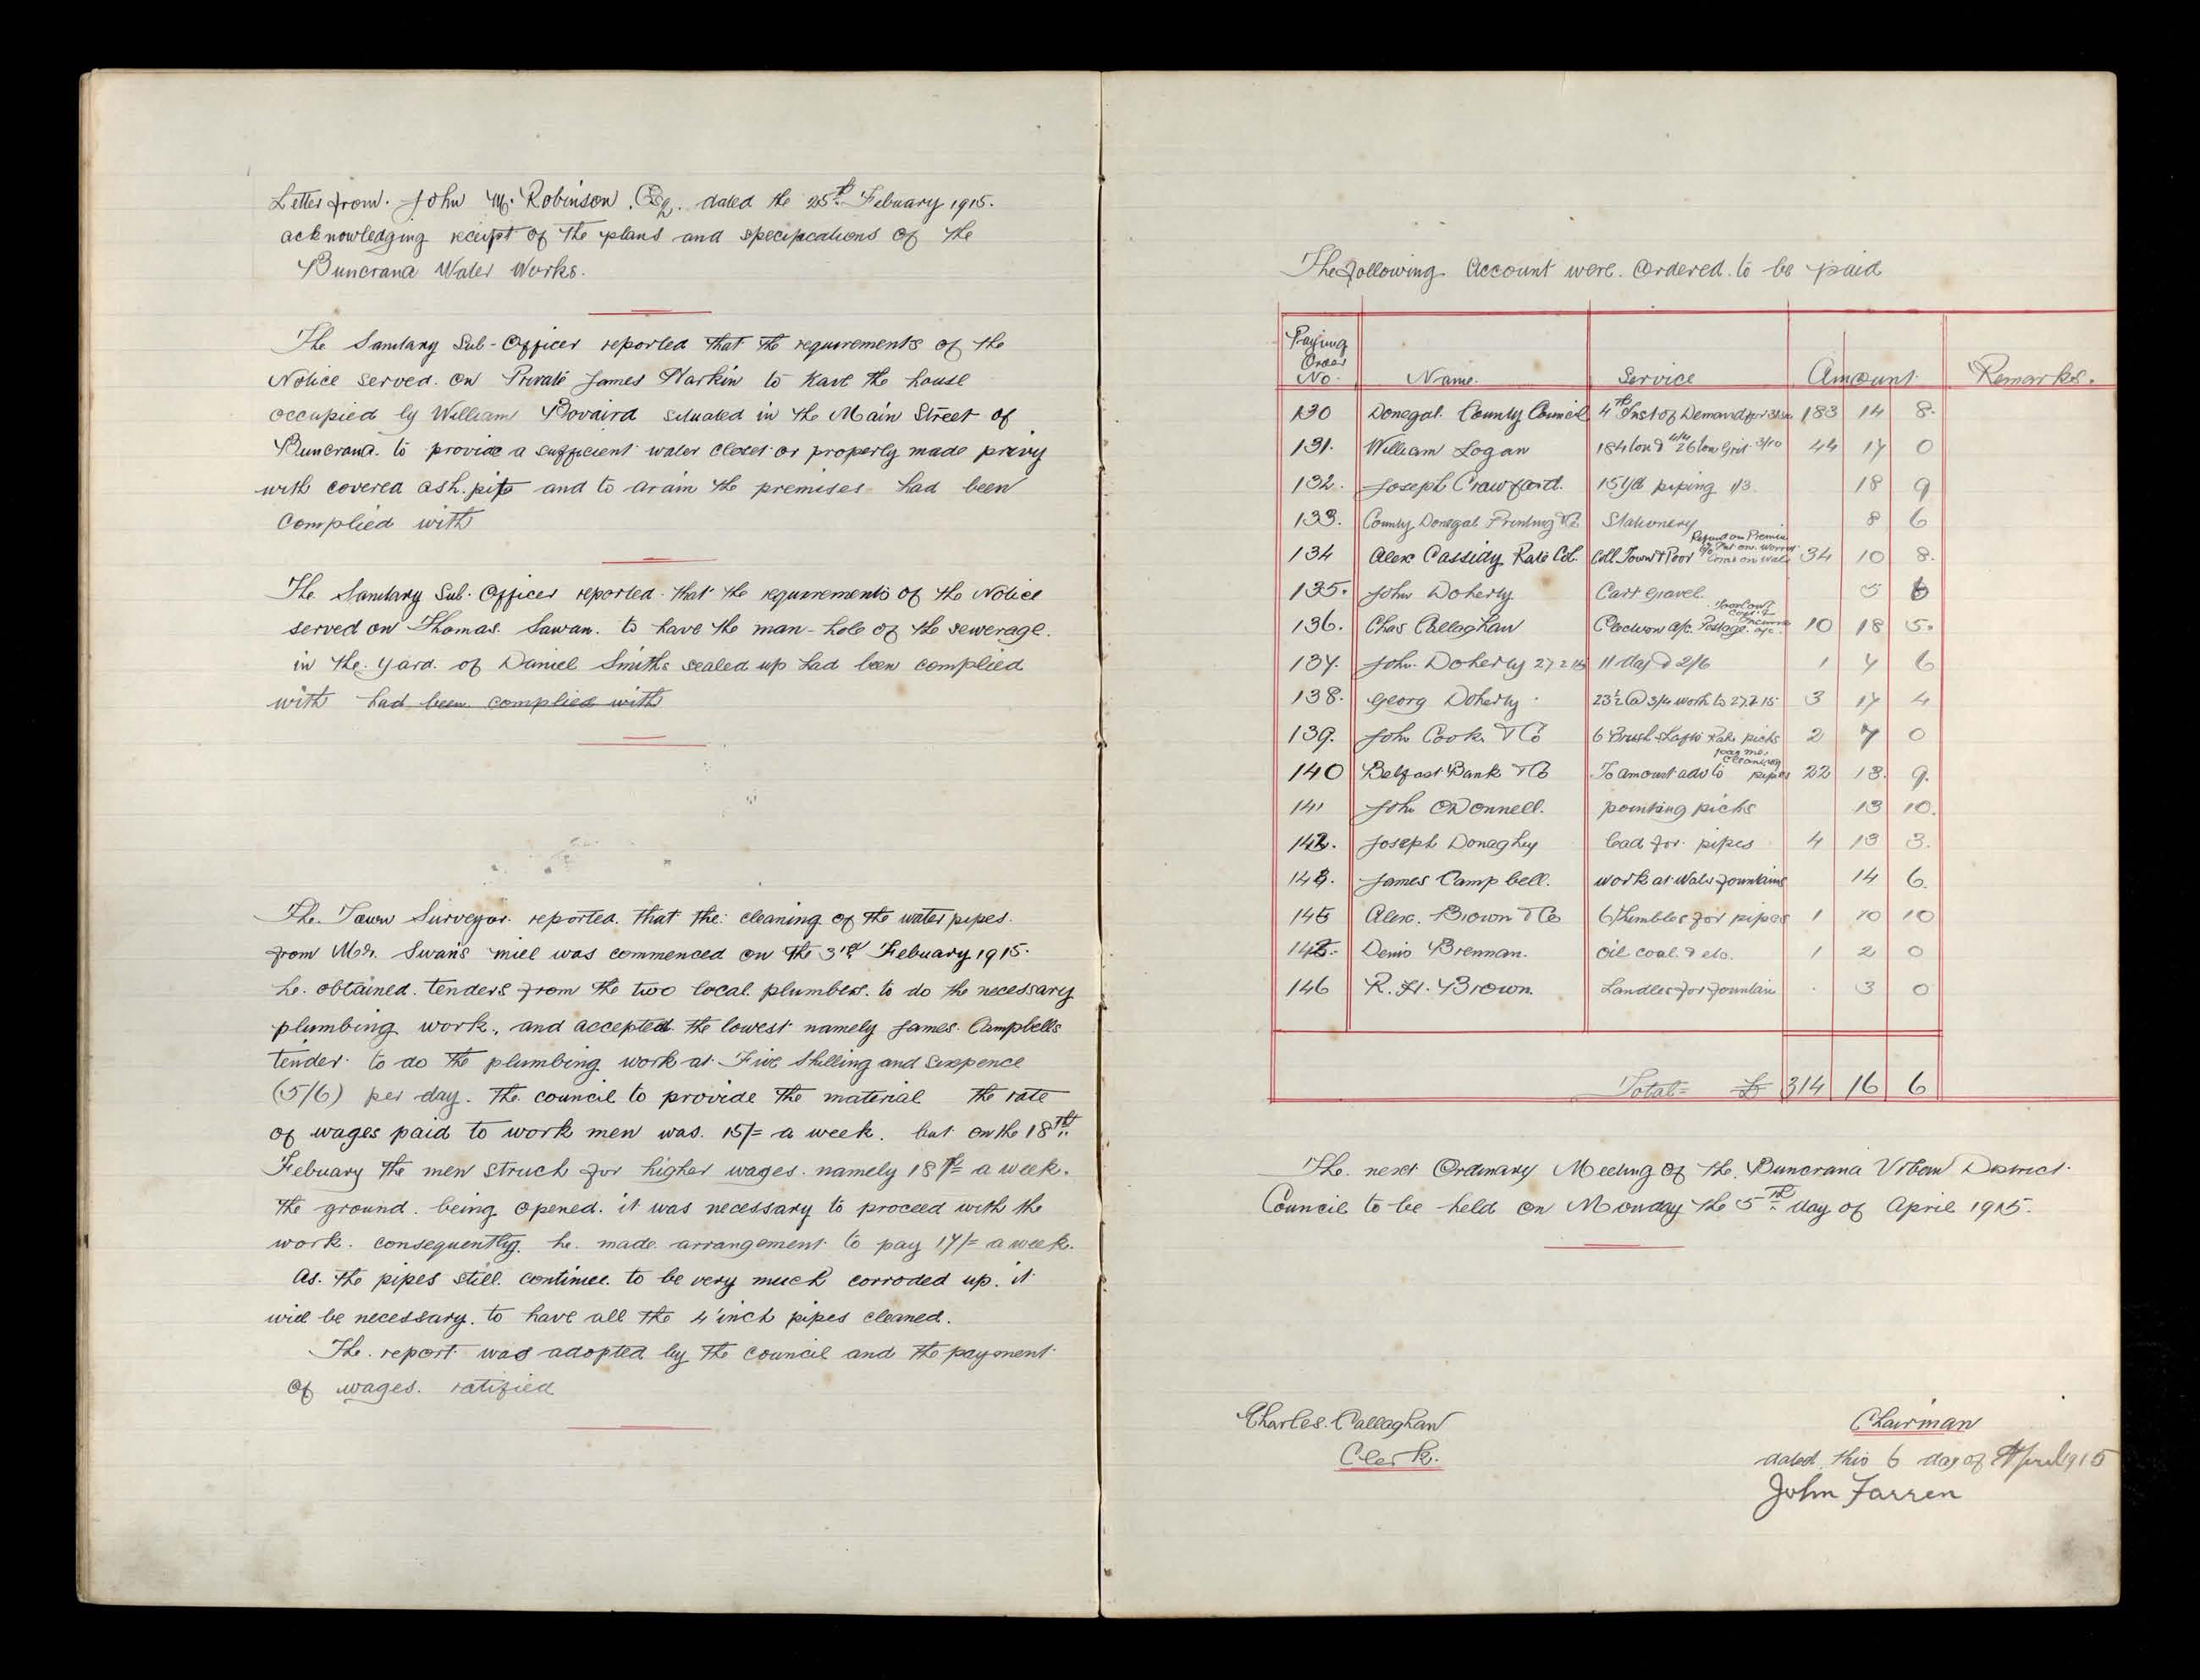 Letter from. John M. Robinson. Esq. dated the 25th Febuary 1915.
acknowledging receipt of the plans and specifications of the
Buncrana Water Works.
The Sanitary Sub-Officer reported that the requirements of the
Notice served. on Private James Harkin to have the house
occupied by William Bovaird situated in the Main Street of
Buncrana. to provide a sufficient water closet or properly made privy
with covered ash. pits and to drain the premises had been
complied with
The Sanitary Sub. Officer reported that the requirements of the Notice
served on Thomas. to have the man-hole of the sewerage.
in the. yard. of Daniel Smiths sealed up had been complied
with had been complied with
The. Town Surveyor. reported. that the: cleaning of the water pipes.
from Mr. Swan's mill was commenced on the 3rd Febuary 1915.
he. obtained. tenders from the two local. plumbers. to do the necessary
plumbing work., and accepted the lowest namely James. Campbells
tender to do the plumbing work at Five Shilling and Sixpence
(5/6) per day. The council to provide the material the rate
of wages paid to work men was. 15/= a week. but on the 18th
Febuary the men struck for higher wages. namely 18/= a week.
the ground. being opened. it was necessary to proceed with the
work. consequently. he. made arrangement to pay 17/= a week.
As. the pipes still. continue. to be very much corroded up. it
will be necessary. to have all the 4 inch pipes cleaned.
The. report was adopted by the council and the payment
of wages. ratified
The following Account were. Ordered. to be paid
Paying
Order
No. Name. Service Amount Remarks.
130 Donegal. County Council 4th Inst of Demand for 183 14 8.
131. William Logan 184 tons 4/4 26 ton Grit 3/10 44 17 0
132. Joseph Crawford. 15 yds piping 1/3. 18 9
133. County Donegal Printing & Co Stationery 8 6
134 Alex Cassidy Rate Col. Coll. Town & Poor Refund on 34 10 8.
135. John Doherty Cart gravel. 5 6
136. Chas Callaghan Election a/c. Postage. 10 18 5.
137. John. Doherty 27 2 15 11 days @ 2/6 1 7 6
138. Georg Doherty 23½ @ 3/4 work to 27.2.15 3 17 4
139. John Cook. & Co 6 Brush Shafts Rake picks 2 7 0
140 Belfast Bank & Co To amount adv to cleaning pipes 22 13. 9.
141 John O'Donnell. pointing picks 13 10.
142. Joseph Donaghey lead for. pipes 4 13 3.
143. James Campbell. work at Water fountains 14 6.
145 Alex. Brown & Co 6 Thimbles for pipes 1 10 10
Denis Brennan. Oil coal & etc. 1 2 0
146 R. H. Brown. Candles for fountain 3 0
Total= £ 314 16 6
The. next Ordinary Meeting of the. Buncrana Urban District.
Council to be held on Monday the 5th day of April 1915.
Charles. Callaghan
Clerk.
Chairman
dated this 6 day of April 1915
John Farren